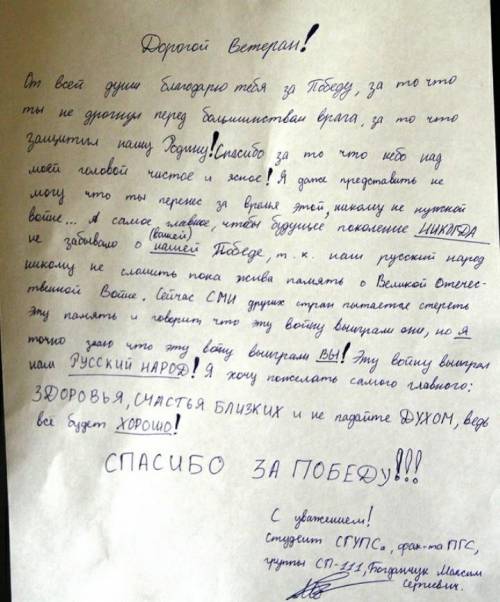 Дорогой Ветеран!
От всей души благодарю тебя за Победу, за то что
ты не дрогнул перед большинствам врага, за то что
защитил нашу Родину! Спасибо за то что небо над
моей головой чистое и ясное! Я даже представить не
могу что ты перенёс за время этой, никому не нужной
войне... А самое главное, чтобы будущее поколение НИКОГДА
(вашей)
не забывало о нашей Победе, т.к. наш русский народ
никому не сломить пока жива память о Великой Отечес-
твенной Войне. Сейчас СМИ других стран пытается стереть
эту память и говорит, что эту войну выиграли они, но я
точно знаю что эту войну выиграли ВЫ! Эту войну выиграл
наш РУССКИЙ НАРОД! Я хочу пожелать самого главного:
ЗДОРОВЬЯ, СЧАСТЬЯ БЛИЗКИХ и не падайте ДУХОМ, ведь
всё будет ХОРОШО!
СПАСИБО ЗА ПОБЕДУ!!!
С уважением!
студент СГУПС, фак-та ПГС,
группы СП-111, Богданчук Максим
Сергиевич.